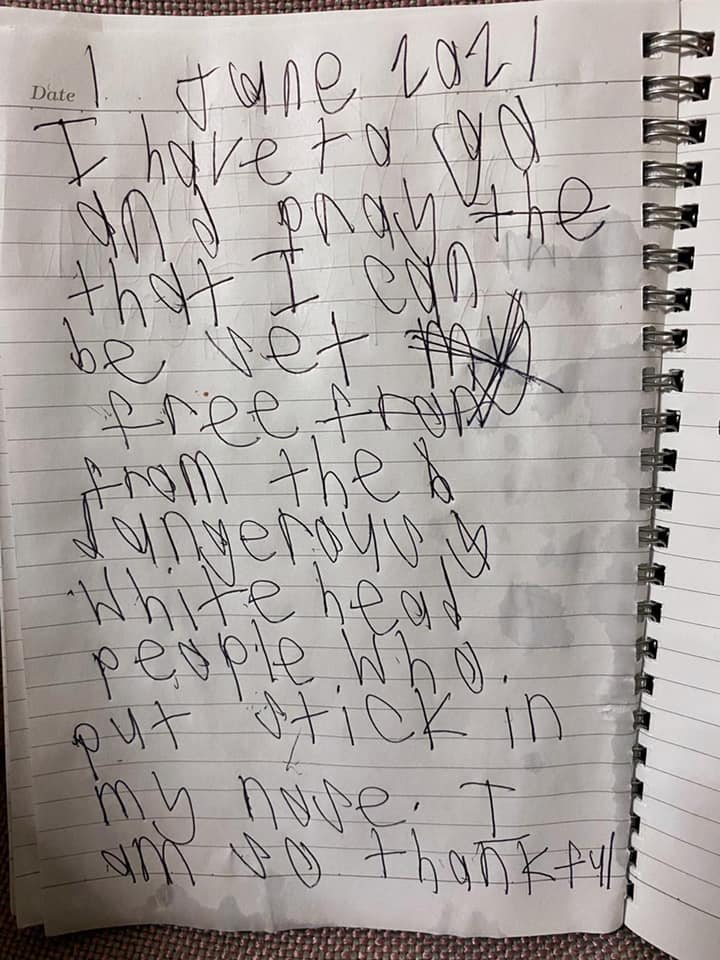 Date 1 June 2021
I have to go
and pray the
that I can
be set my
free from
from the b
dangeroyus y
white head
people who.
put stick in
my nose. I
am so thankful